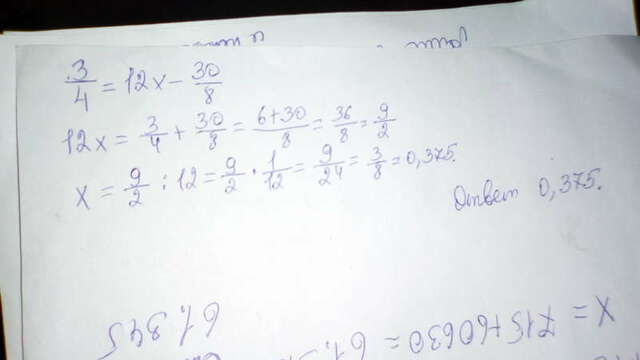 3/4 = 12x - 30/8
12x = 3/4 + 30/8 = 6+30/8 = 36/8 = 9/2
x = 9/2 : 12 = 9/2 · 1/12 = 9/24 = 3/8 = 0,375.
Ответ 0,375.
x = 715+60630 =
61,345